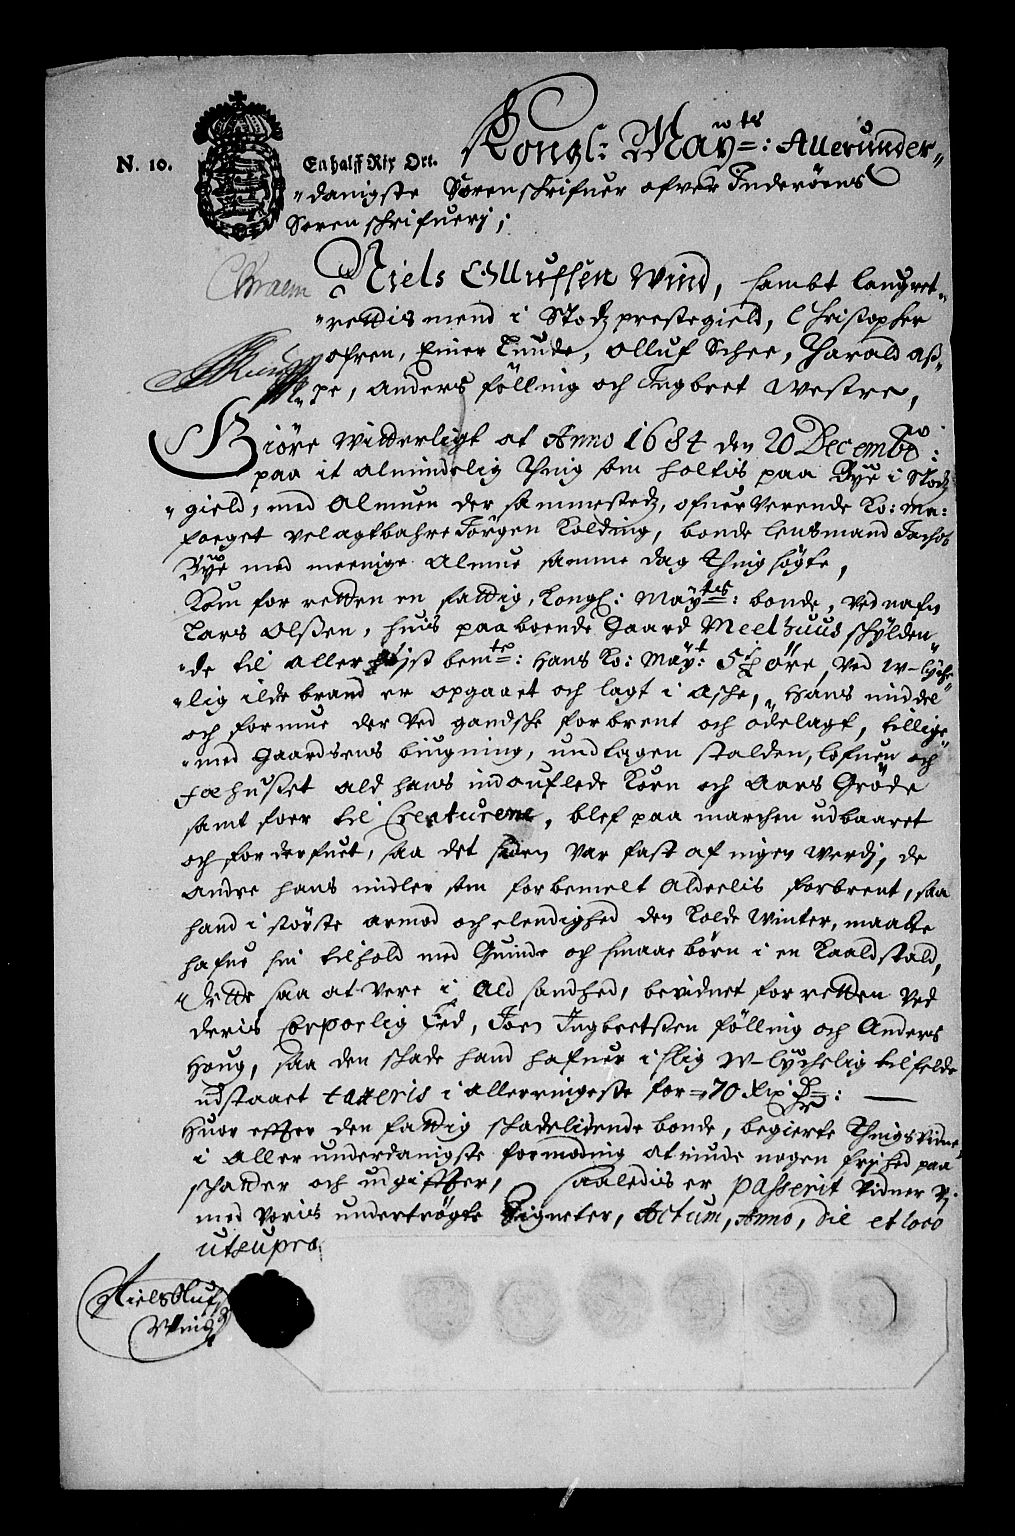 N. 10. En halff Rix Ort. Kongl: Mayts: Allerunder-
danigste Sorenschrifuer ofver Inderöens
Sorenschrifueri;
Niels Olluffsen Wind, sambt laugret-
rettis mend i Stodz prestegield, Christopher
ofren, Einer Lunde, Olluf Schee, Harald Aß-
pe, Anders Fölling och Ingbret Westre,
Giöre Witterligt at Anno 1684 den 20 Decembr:
paa it almindelig Thing som holtis paa Bye i Stodz
gield, med Almuen der sammestedz, ofuerverende Ko: Ma:
foeget velagtbahre Jörgen Kolding, bonde lensmand Jachob
Bye med meenige Almue samme dag Thing sögte,
Kom for retten en fattig, Kongl: Mayts: bonde, ved nafn
Lars Olßen, huis paaboende Gaard Meelhuus schylden-
de til aller höjst bemte: Hans Ko: Mayt: öre, ved w-lyche-
lig ildebrand er opgaaet och lagt i asche, Hans middel
och formue der ved gandsche forbrent och ödelagt, tillige-
med Gaardsens biugning, undtagen stalden, lofuen och
fæhusset ald hans indauflede Korn och Aars Gröde
samt foer til Creaturene, blef paa marchen udbaaret
och forderfuet, saa det siden var fast af ingen werdj, de
andre hans midler som forbemelt aldeelis forbrent, saa
hand i störste armod och elendighed den kolde Winter, maatte
hafue sin tilhold med Quinde och smaae börn i en kaald stald,
Dette saa at vere i Ald sandhed, bevidnet for retten ved
deris Corporlig Eed, Joen Ingbretßen Fölling och Anders
Haug, saa den schade hand hafuer i slig w-lychelig tilfelde
udstaaet taxeris i allerringeste for 70 Rix Dr:
Huor effter den fattig schadelidende bonde, begierte Thingsvidne
i allerunderdanigste formoding at niude nogen frihed paa
schatter och udgiffter, saaledis er passerit vidner vj
med voris undertrögte Signeter, Actum, Anno, die et loco
utsupra
Niels Olufs
Wind